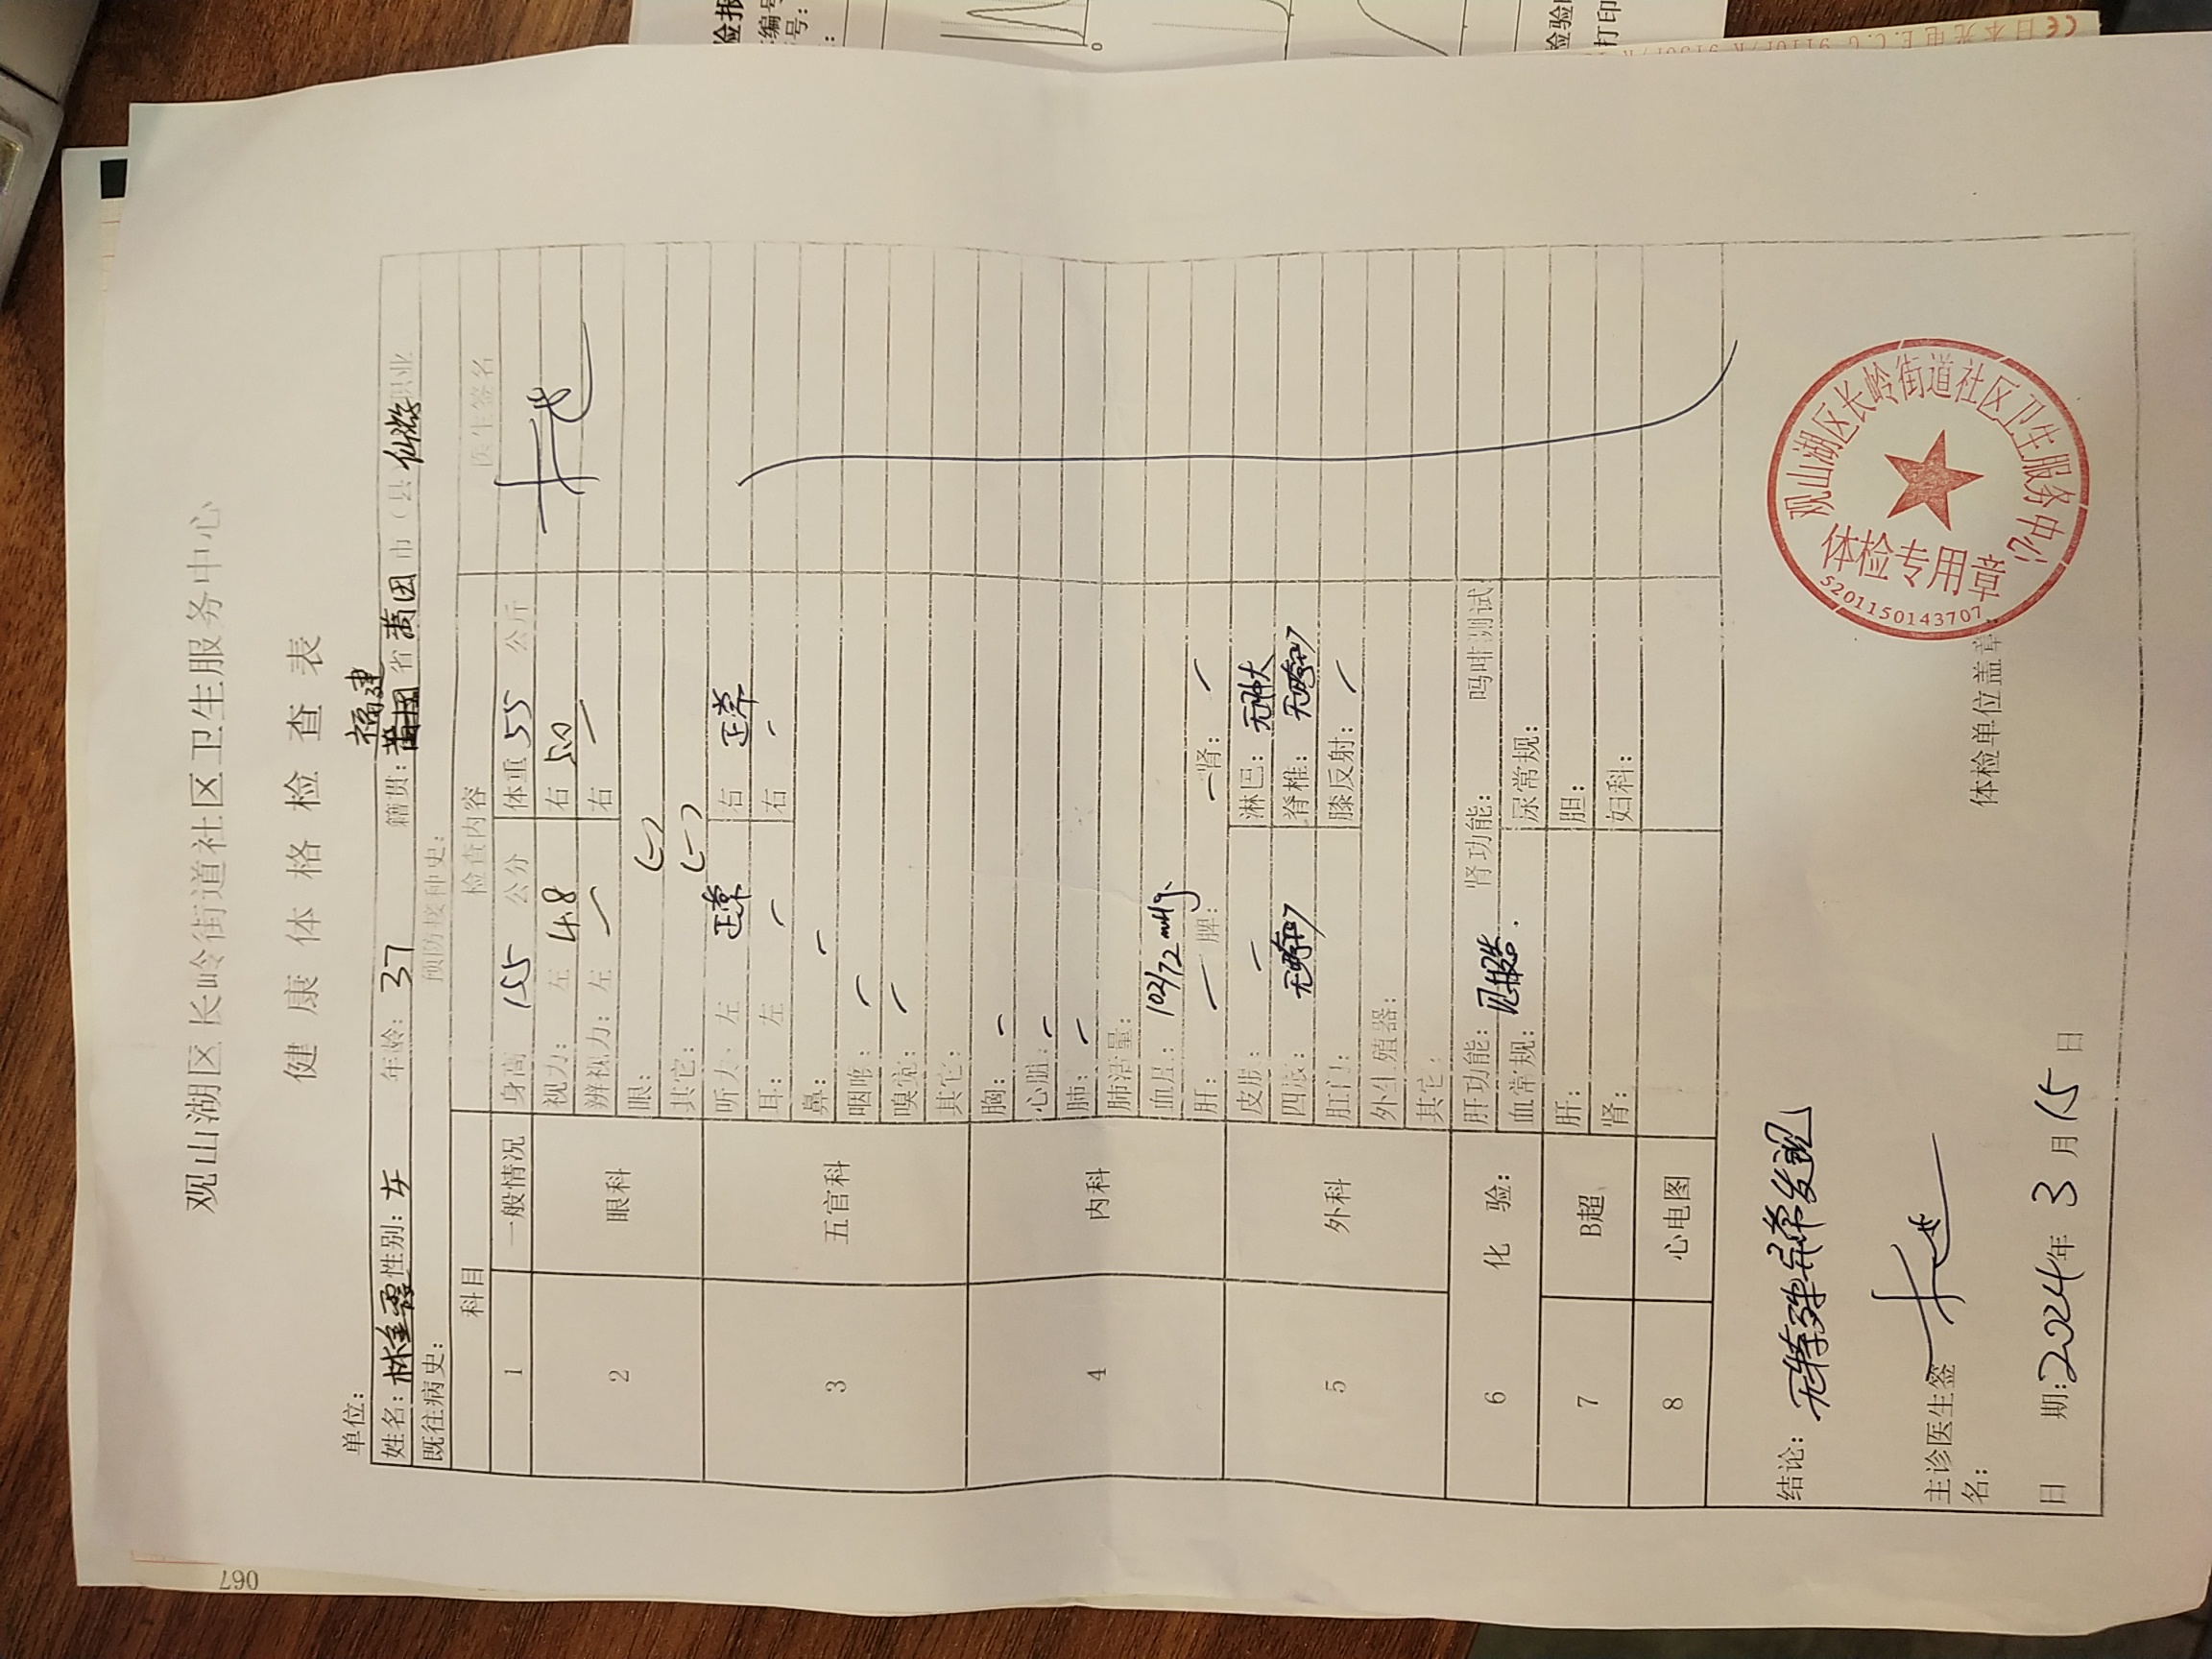 观山湖区长岭街道社区卫生服务中心
健康体格检查表
单位：
姓名：林金霞 性别：女 年龄：37 籍贯：福建省莆田市（县 仙游 职业
既往病史： 预防接种史：
科目 检查内容 医生签名
1 一般情况 身高 155 公分 体重 55 公斤
2 眼科 视力：左 4.8 右 5.0
辨视力：左 / 右 /
眼： (-)
其它： (-)
3 五官科 听力：左 正常 右 正常
耳：左 / 右 /
鼻： /
咽喉： /
嗅觉： /
其它：
4 内科 胸： /
心脏： /
肺： /
肺活量：
血压： 102/72 mmHg
肝： / 脾： / 肾： /
5 外科 皮肤： / 淋巴： 无肿大
四肢： 无畸形 脊椎： 无畸形
肛门： 膝反射： /
外生殖器：
其它：
6 化验： 肝功能： 肾功能： 吗啡测试
见报告.
血常规： 尿常规：
7 B超 肝： 胆：
肾： 妇科：
8 心电图
结论： 无特殊异常发现
主诊医生签
名：
体检单位盖章
日 期: 2024年 3 月 15 日
观山湖区长岭街道社区卫生服务中心
体检专用章
5201150143707
067
日本光电 E.C.G
CE
0